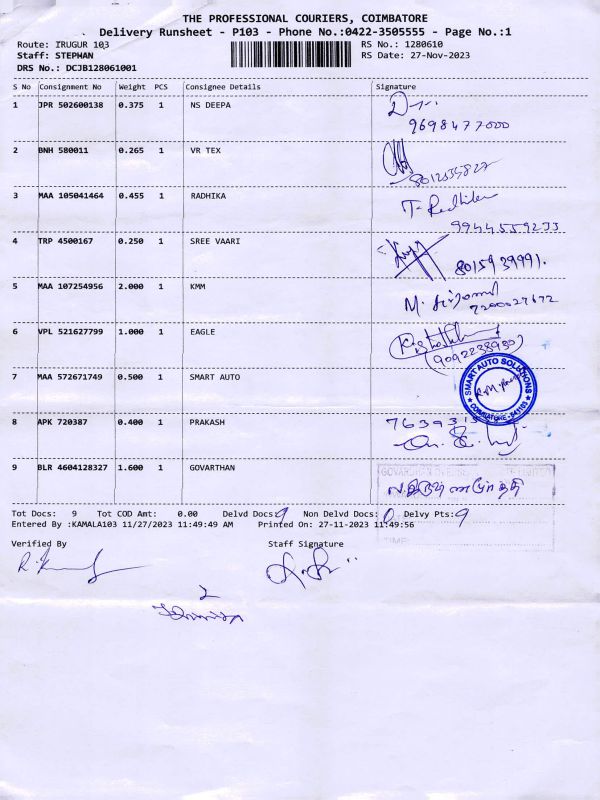 THE PROFESSIONAL COURIERS, COIMBATORE
Delivery Runsheet - P103 - Phone No.:0422-3505555 - Page No.:1
Route: IRUGUR 103 RS No.: 1280610
Staff: STEPHAN RS Date: 27-Nov-2023
DRS No.: DCJB128061001
S No Consignment No Weight PCS Consignee Details Signature
1 JPR 502600138 0.375 1 NS DEEPA
9698477000
2 BNH 580011 0.265 1 VR TEX
3 MAA 105041464 0.455 1 RADHIKA T- Radhika
9944559233
4 TRP 4500167 0.250 1 SREE VAARI
8015939991.
5 MAA 107254956 2.000 1 KMM M.
6 VPL 521627799 1.000 1 EAGLE
(9092238930)
7 MAA 572671749 0.500 1 SMART AUTO SMART AUTO SOLUTIONS
COIMBATORE
8 APK 720387 0.400 1 PRAKASH
9 BLR 4604128327 1.600 1 GOVARTHAN
Tot Docs: 9 Tot COD Amt: 0.00 Delvd Docs: 9 Non Delvd Docs: 0 Delvy Pts: 9
Entered By :KAMALA103 11/27/2023 11:49:49 AM Printed On: 27-11-2023 11:49:56
TIME:
Verified By Staff Signature